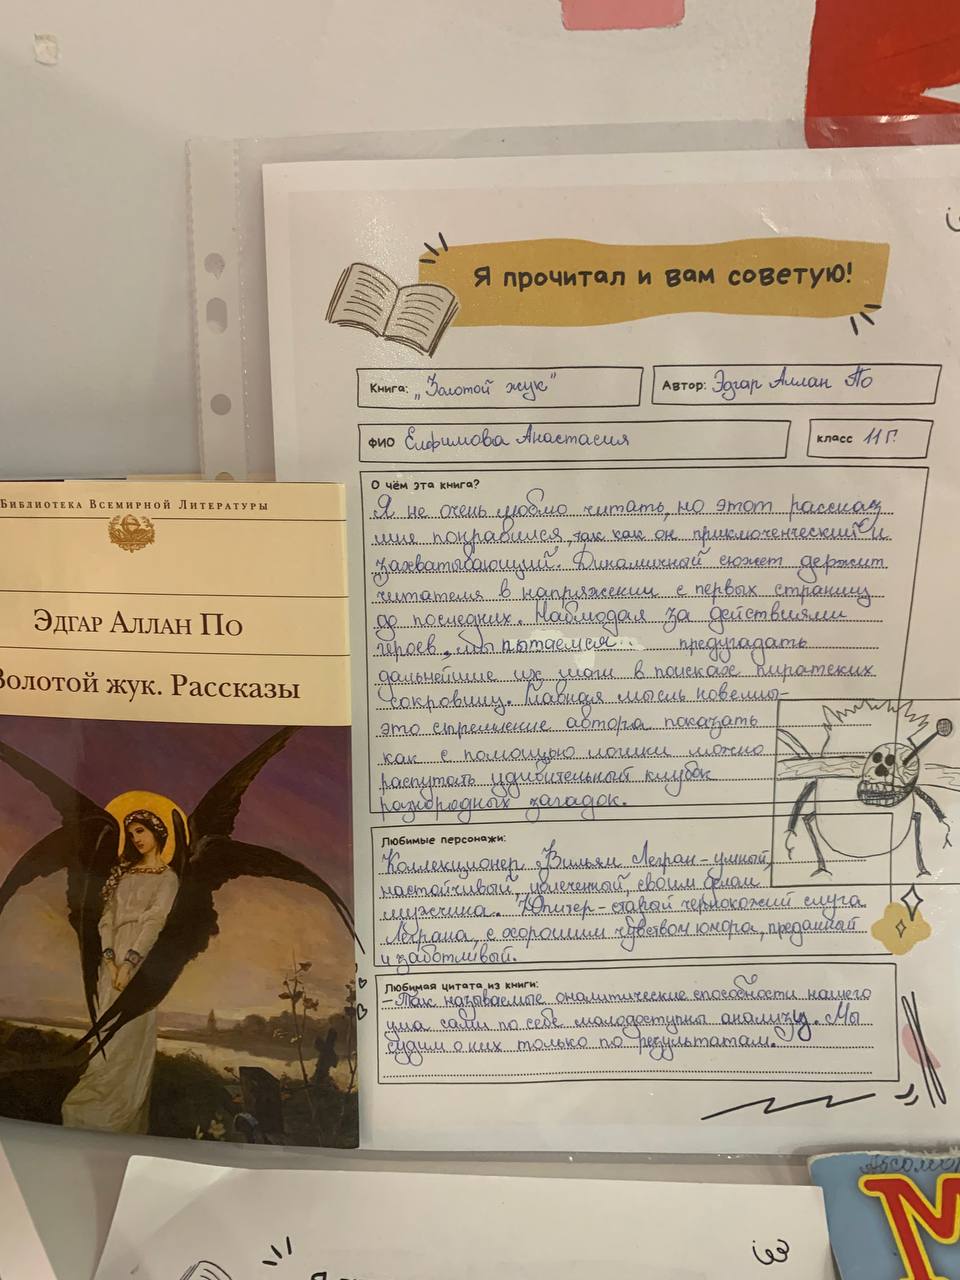 Я прочитал и вам советую!
Книга: „Золотой жук"
Автор: Эдгар Аллан По
ФИО Елфимова Анастасия
класс 11 Г
О чём эта книга?
Я не очень люблю читать, но этот рассказ
мне понравился, так как он приключенческий и
захватывающий. Динамичный сюжет держит
читателя в напряжении с первых страниц
до последних. Наблюдая за действиями
героев, мы пытаемся предугадать
дальнейшие их шаги в поисках пиратских
сокровищ. Главная мысль новеллы-
это стремление автора показать
как с помощью логики можно
распутать удивительный клубок
разнородных загадок.
Любимые персонажи:
Коллекционер Вильям Легран - умный,
настойчивый, увлеченный своим делом
мужчина. Юпитер - старый чернокожий слуга
Леграна, с хорошим чувством юмора, преданный
и заботливый.
Любимая цитата из книги:
- Так называемые аналитические способности нашего
ума сами по себе малодоступны анализу. Мы
судим о них только по результатам.
Библиотека Всемирной Литературы
Эдгар Аллан По
Золотой жук. Рассказы
М